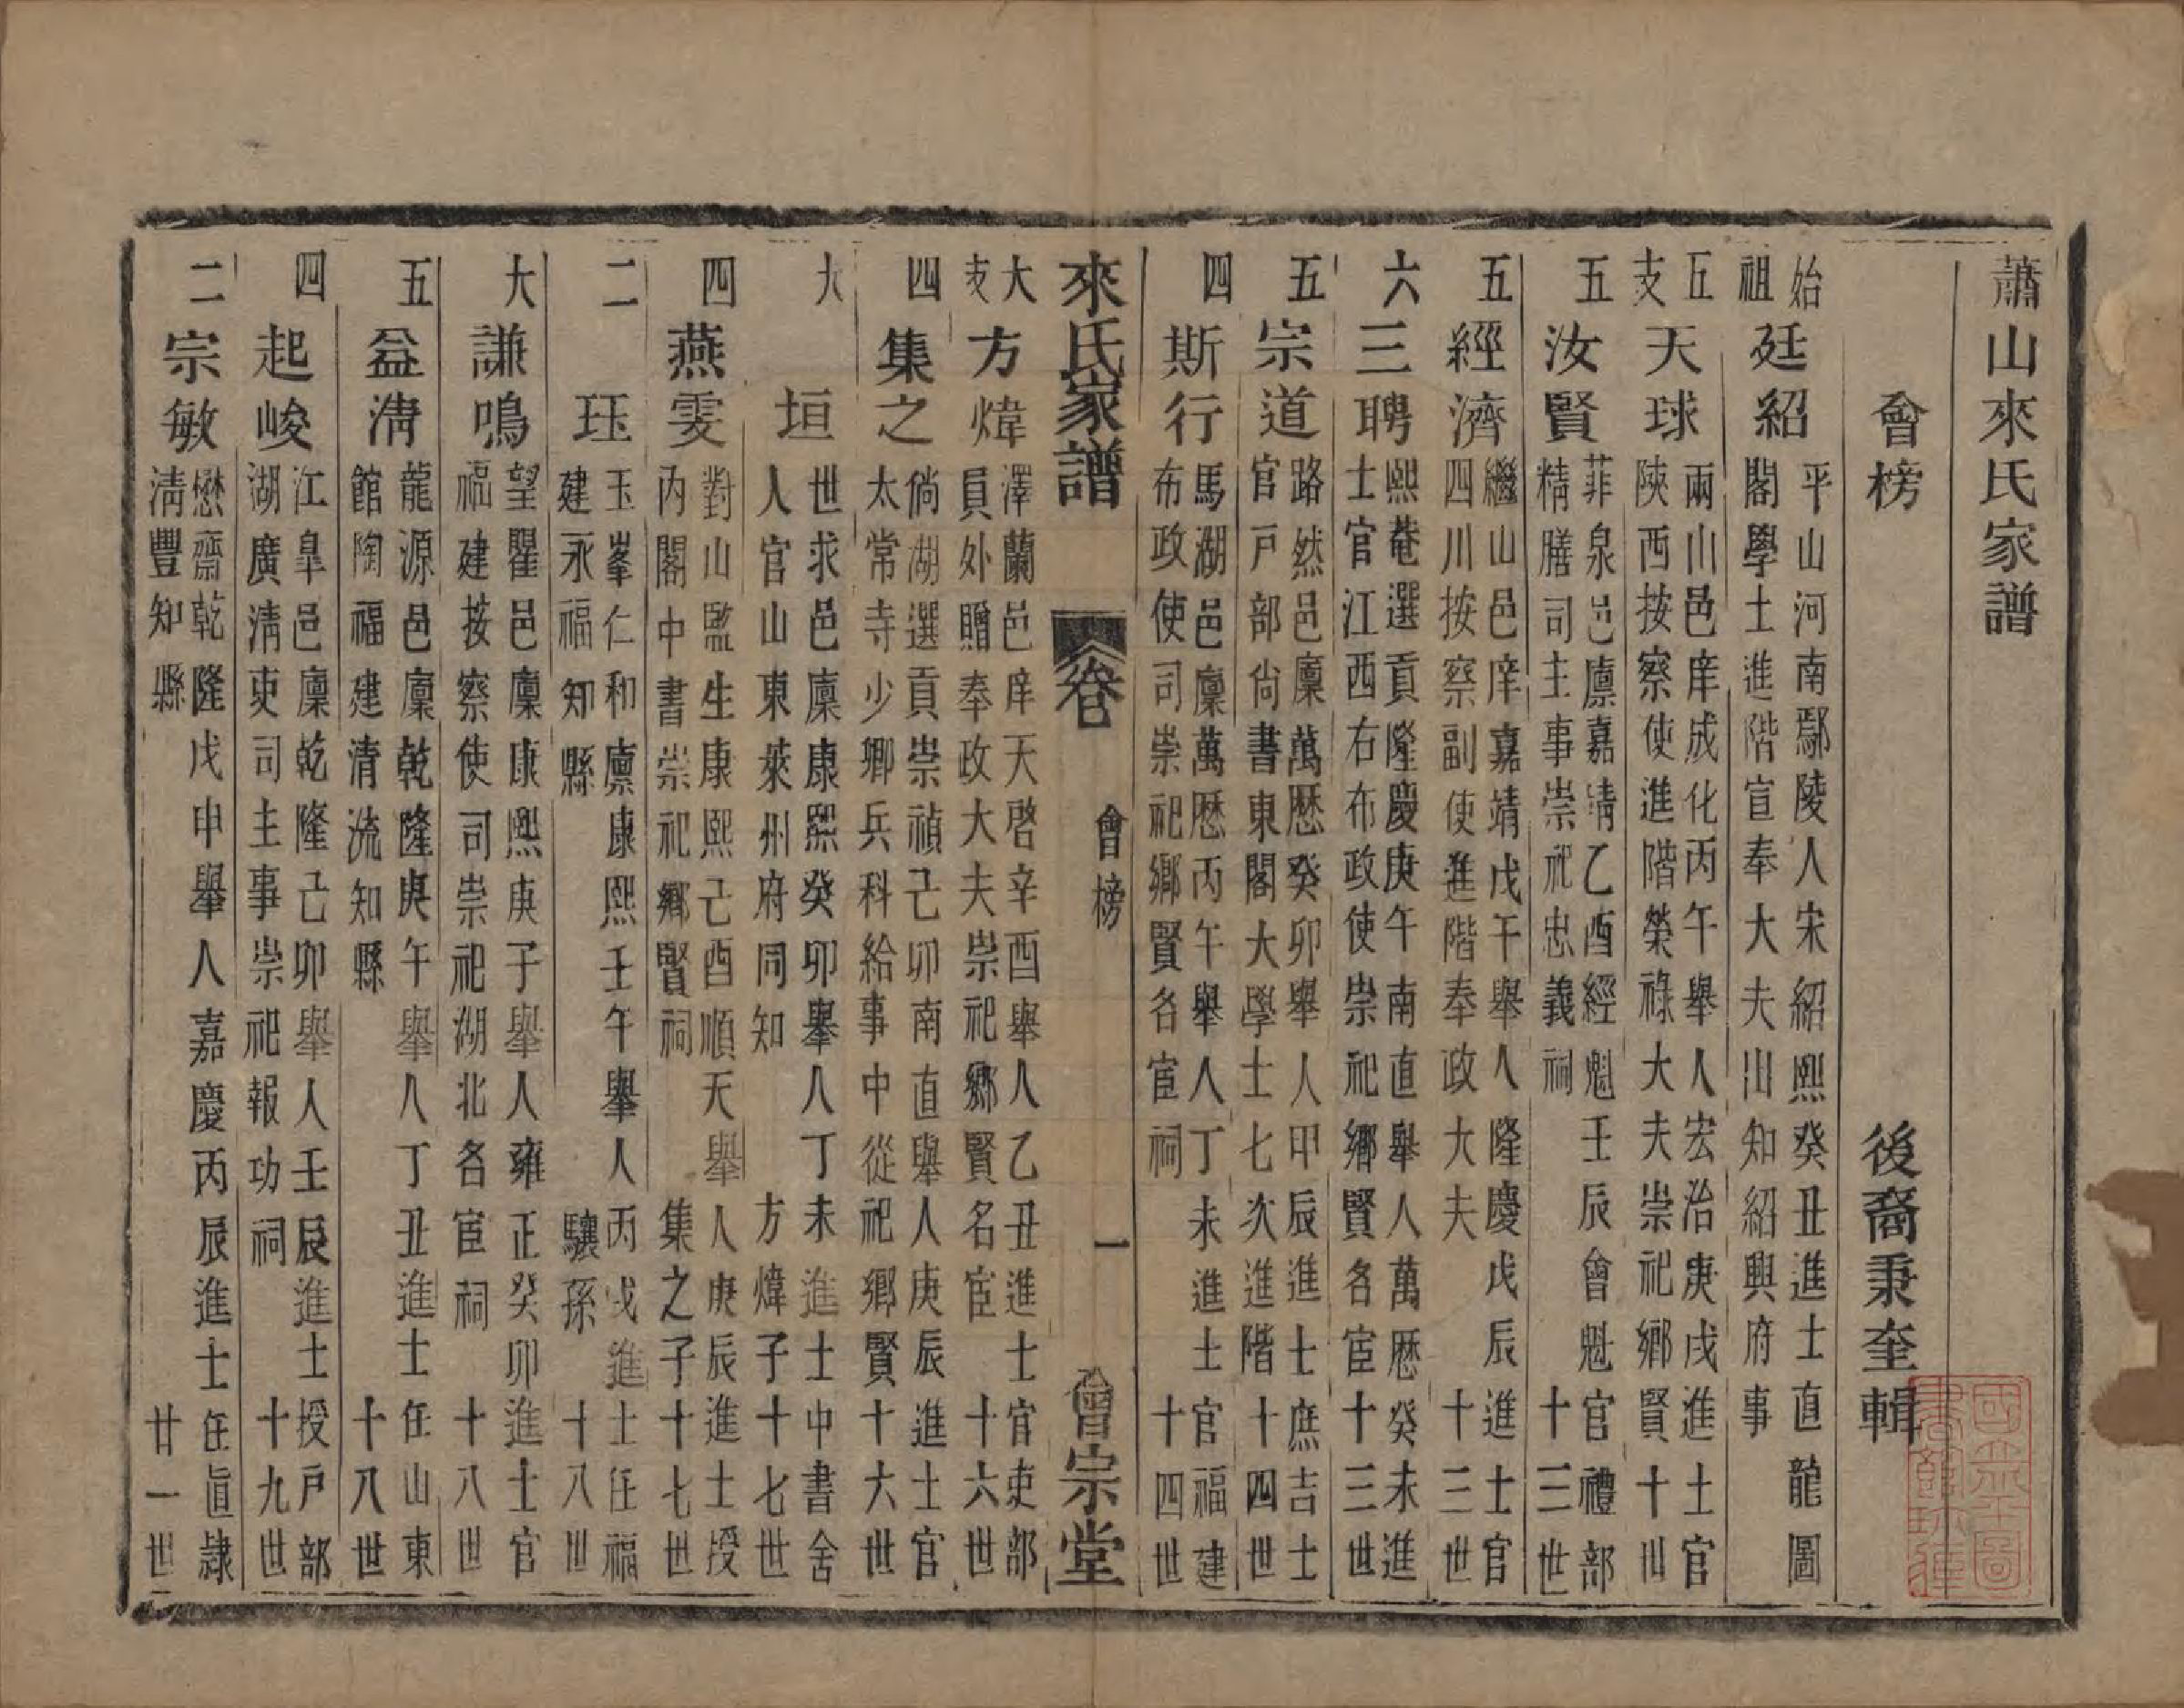 蕭山來氏家譜
會榜
後裔秉奎輯
始祖
廷紹
平山河南鄢陵人宋紹熙癸丑進士直龍圖
閣學士進階宣奉大夫出知紹興府事
五支
天球
兩山邑庠成化丙午舉人宏治庚戌進士官
陝西按察使進階榮祿大夫崇祀鄉賢十世
五
汝賢
菲泉邑廩嘉靖乙酉經魁壬辰會魁官禮部
精膳司主事崇祀忠義祠十三世
五
經濟
繼山邑庠嘉靖戊午舉人隆慶戊辰進士官
四川按察副使進階奉政大夫十三世
六
三聘
熙菴選貢隆慶庚午南直舉人萬歷癸未進
士官江西右布政使崇祀鄉賢名宦十三世
五
宗道
路然邑廩萬歷癸卯舉人甲辰進士庶吉士
官戸部尙書東閣大學士七次進階十四世
四
斯行
馬湖邑廩萬歷丙午舉人丁未進士官福建
布政使司崇祀鄉賢名宦祠十四世
來氏家譜
卷
會榜
一
會宗堂
大支
方煒
澤蘭邑庠天啓辛酉舉人乙丑進士官吏部
員外贈奉政大夫崇祀鄉賢名宦十六世
四
集之
倘湖選貢崇禎己卯南直舉人庚辰進士官
太常寺少卿兵科給事中從祀鄉賢十六世
大
垣
世求邑廩康熙癸卯舉人丁未進士中書舍
人官山東萊州府同知方煒子十七世
四
燕雯
對山監生康熙己酉順天舉人庚辰進士授
內閣中書崇祀鄉賢祠集之子十七世
二
珏
玉峯仁和廩康熙壬午舉人丙戌進士任福
建永福知縣驤孫十八世
大
謙鳴
望瞿邑廩康熙庚子舉人雍正癸卯進士官
福建按察使司崇祀湖北名宦祠十八世
五
益淸
龍源邑廩乾隆庚午舉人丁丑進士任山東
館陶福建清流知縣十八世
四
起峻
江皐邑廩乾隆己卯舉人壬辰進士授戸部
湖廣清吏司主事崇祀報功祠十九世
二
宗敏
懋齋乾隆戊申舉人嘉慶丙辰進士任直隷
淸豐知縣廿一世